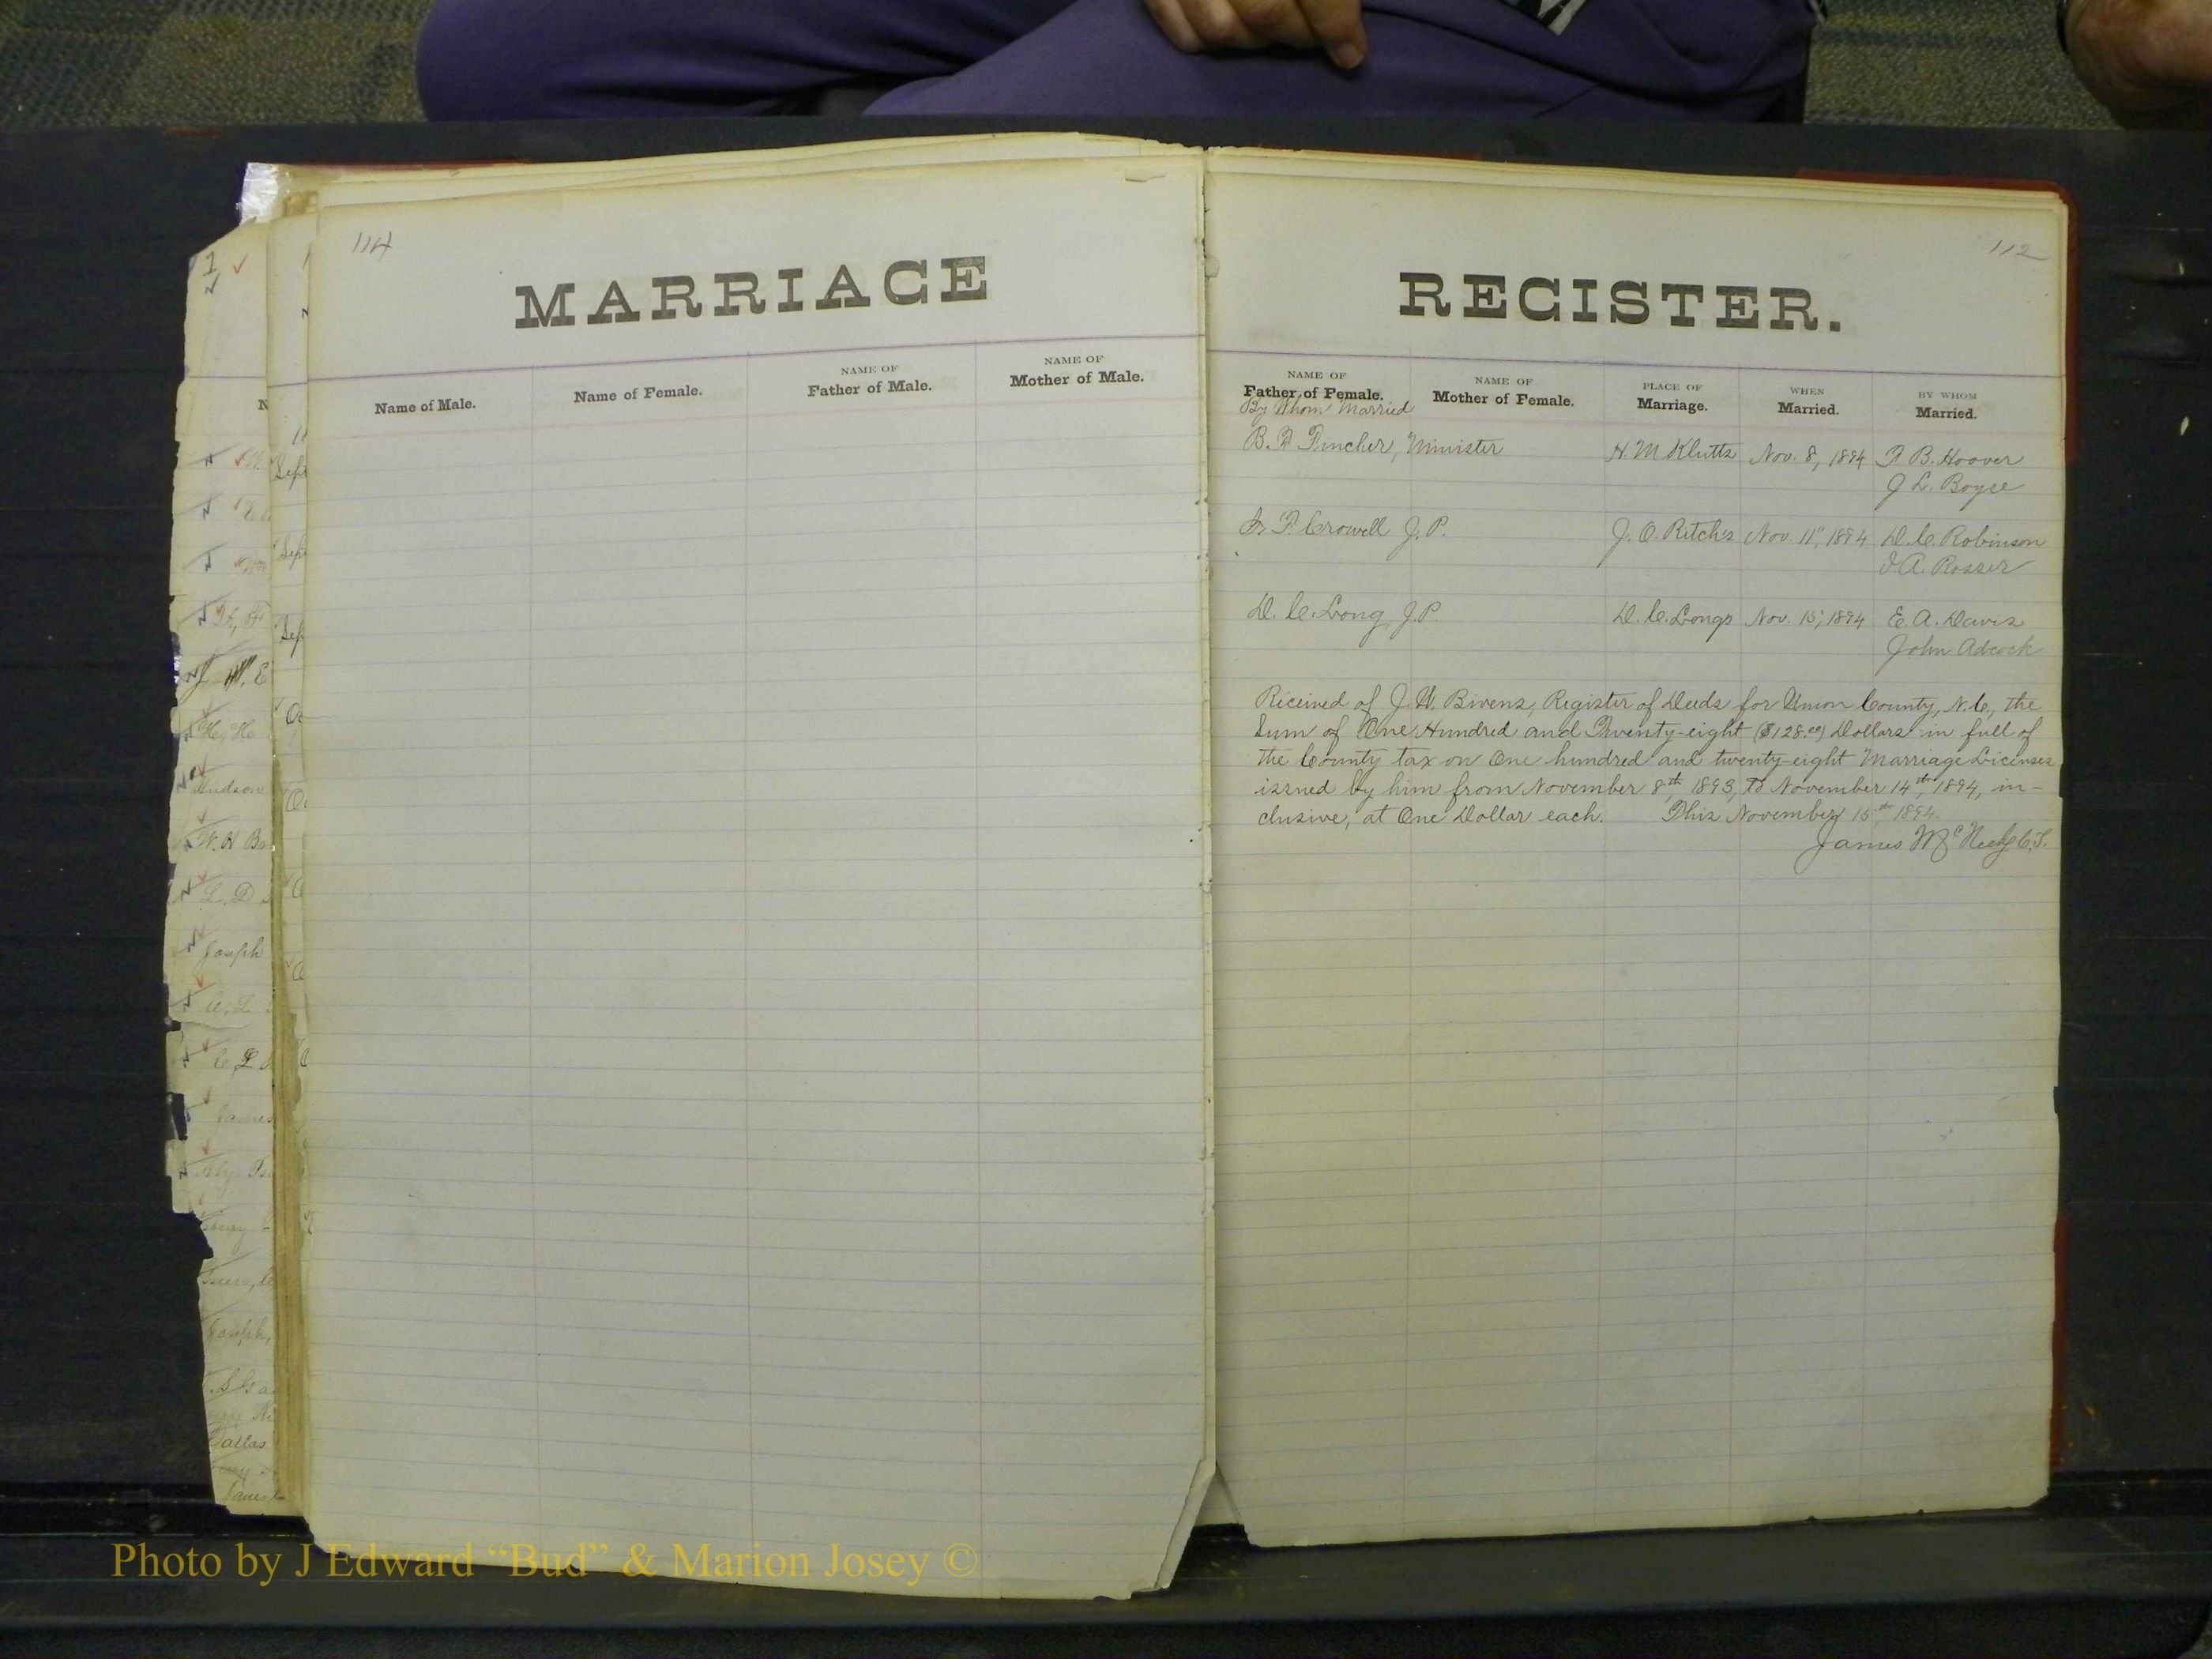 114
MARRIAGE
Name of Male.
Name of Female.
NAME OF
Father of Male.
NAME OF
Mother of Male.
REGISTER.
112
NAME OF
Father of Female.
By Whom Married
NAME OF
Mother of Female.
PLACE OF
Marriage.
WHEN
Married.
BY WHOM
Married.
B. F. Fincher, Minister H. M. Kluttz Nov. 8, 1894 F. B. Hoover
J. L. Boyce
F. Crowell J. P. J. O. Ritch's Nov. 11", 1894 D. C. Robinson
J. A. Rosser
D. C. Long, J. P. D. C. Longs Nov. 15, 1894 E. A. Davis
John Adcock
Received of J. W. Bivens, Register of Deeds for Union County, N.C., the
Sum of One Hundred and Twenty-eight ($128.00) Dollars in full of
the County tax on One hundred and twenty-eight Marriage Licenses
issued by him from November 8th, 1893, to November 14th, 1894, in-
clusive, at One Dollar each. This November 15th 1894.
James McNeely C.T.
1
Sept
Hudson
W. H Ba
L. D
Joseph
C. L
James
Joseph,
Dallas
Photo by J Edward “Bud” & Marion Josey ©